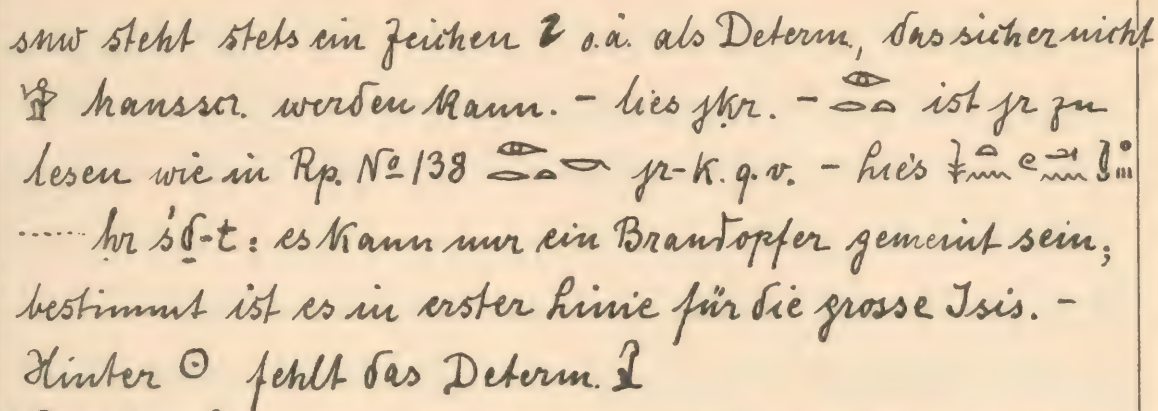 snw steht stets ein Zeichen o.ä. als Determ., das sicher nicht
transscr. werden kann. - lies jkr. - 𓁹𓂋𓏏 ist jr zu
lesen wie in Rp. No 138 𓁹𓂋𓏏𓎡 jr-k. q.v. - lies
...... ḥr śḏ-t: es kann nur ein Brandopfer gemeint sein;
bestimmt ist es in erster Linie für die grosse Isis. -
Hinter ☉ fehlt das Determ.